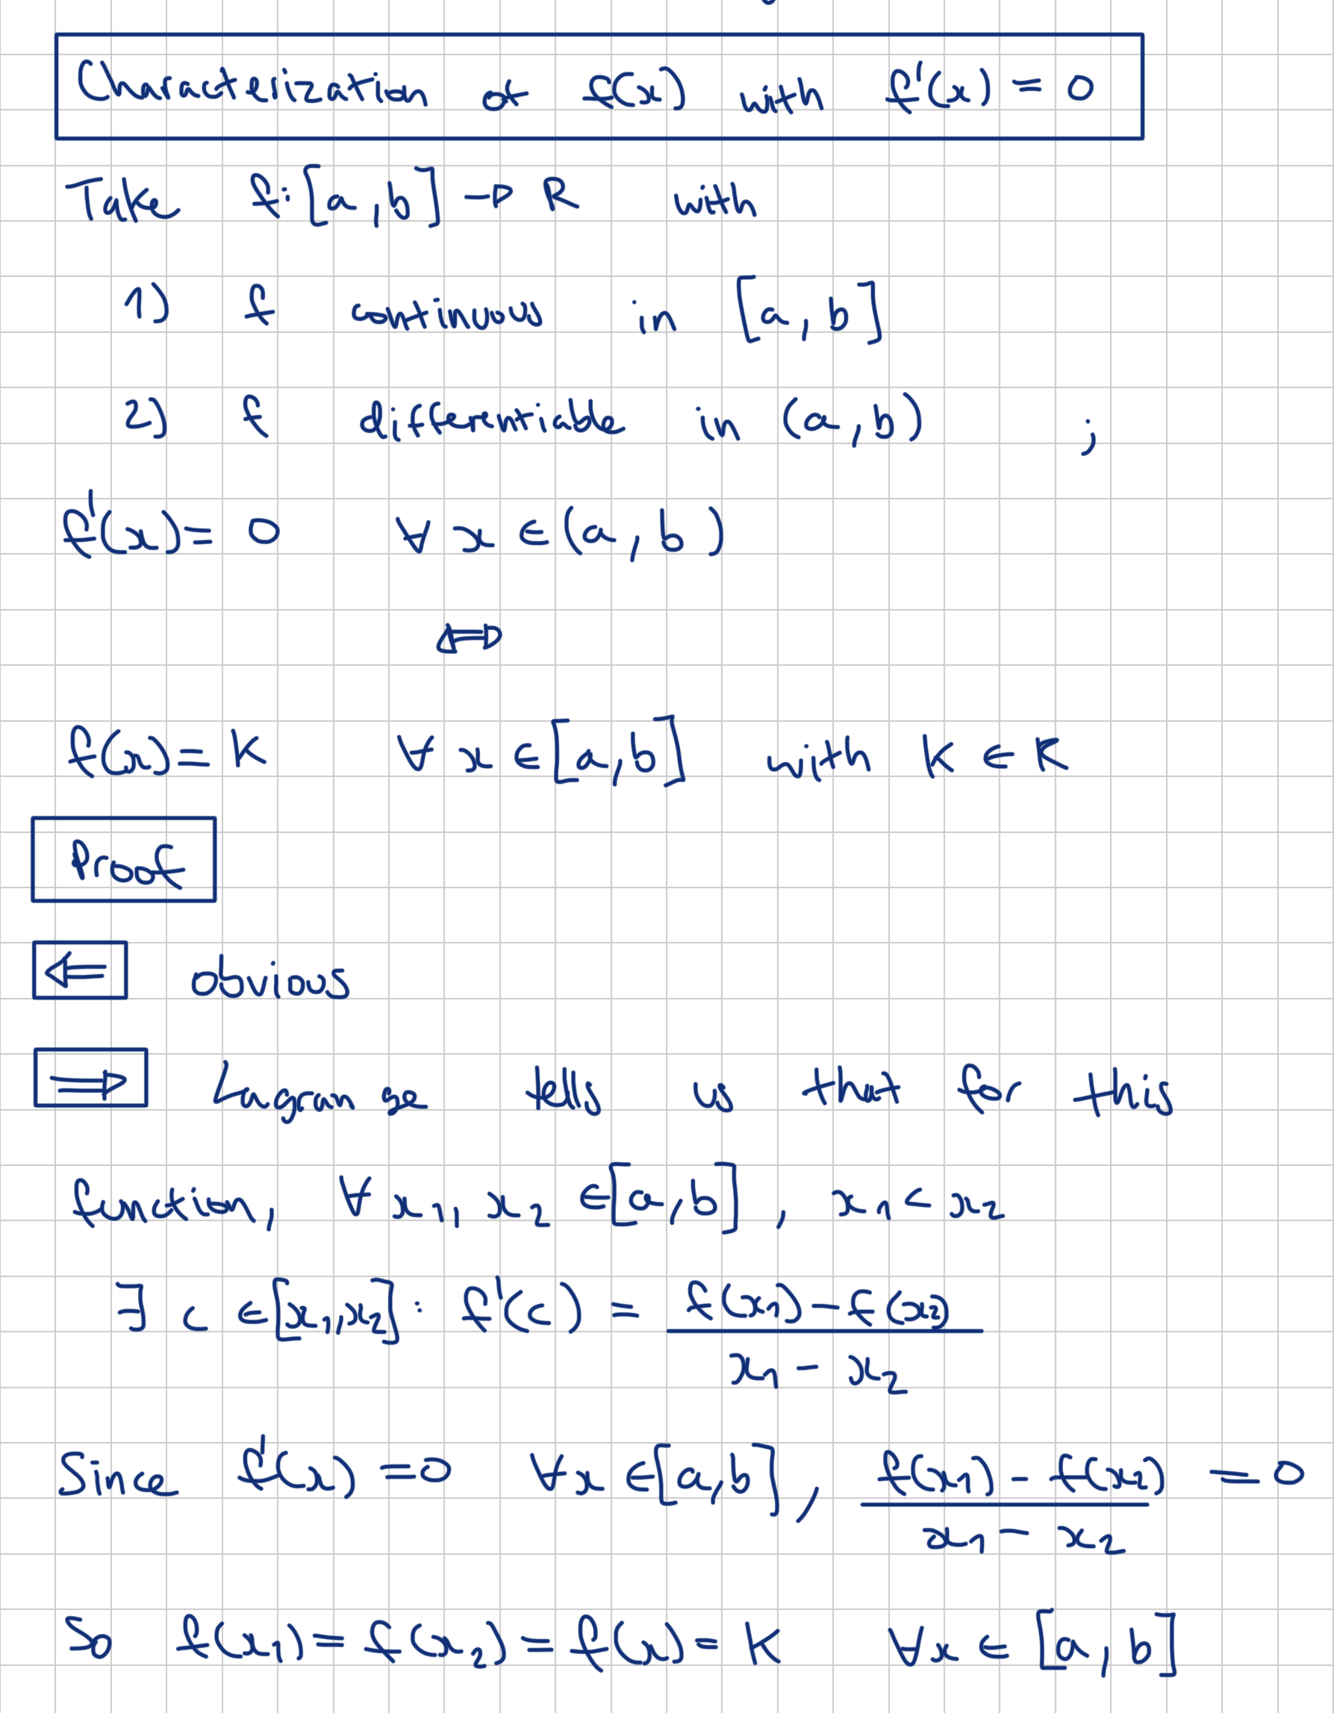 Characterization of f(x) with f'(x) = 0
Take f: [a, b] → R with
1) f continuous in [a, b]
2) f differentiable in (a, b) ;
f'(x) = 0 ∀ x ∈ (a, b)
⇔
f(x) = K ∀ x ∈ [a, b] with K ∈ R
Proof
⇐ obvious
⇒ Lagrange tells us that for this
function, ∀ x₁, x₂ ∈ [a, b], x₁ < x₂
∃ c ∈ [x₁, x₂] : f'(c) = (f(x₁) - f(x₂)) / (x₁ - x₂)
Since f'(x) = 0 ∀x ∈ [a, b], (f(x₁) - f(x₂)) / (x₁ - x₂) = 0
So f(x₁) = f(x₂) = f(x) = K ∀x ∈ [a, b]